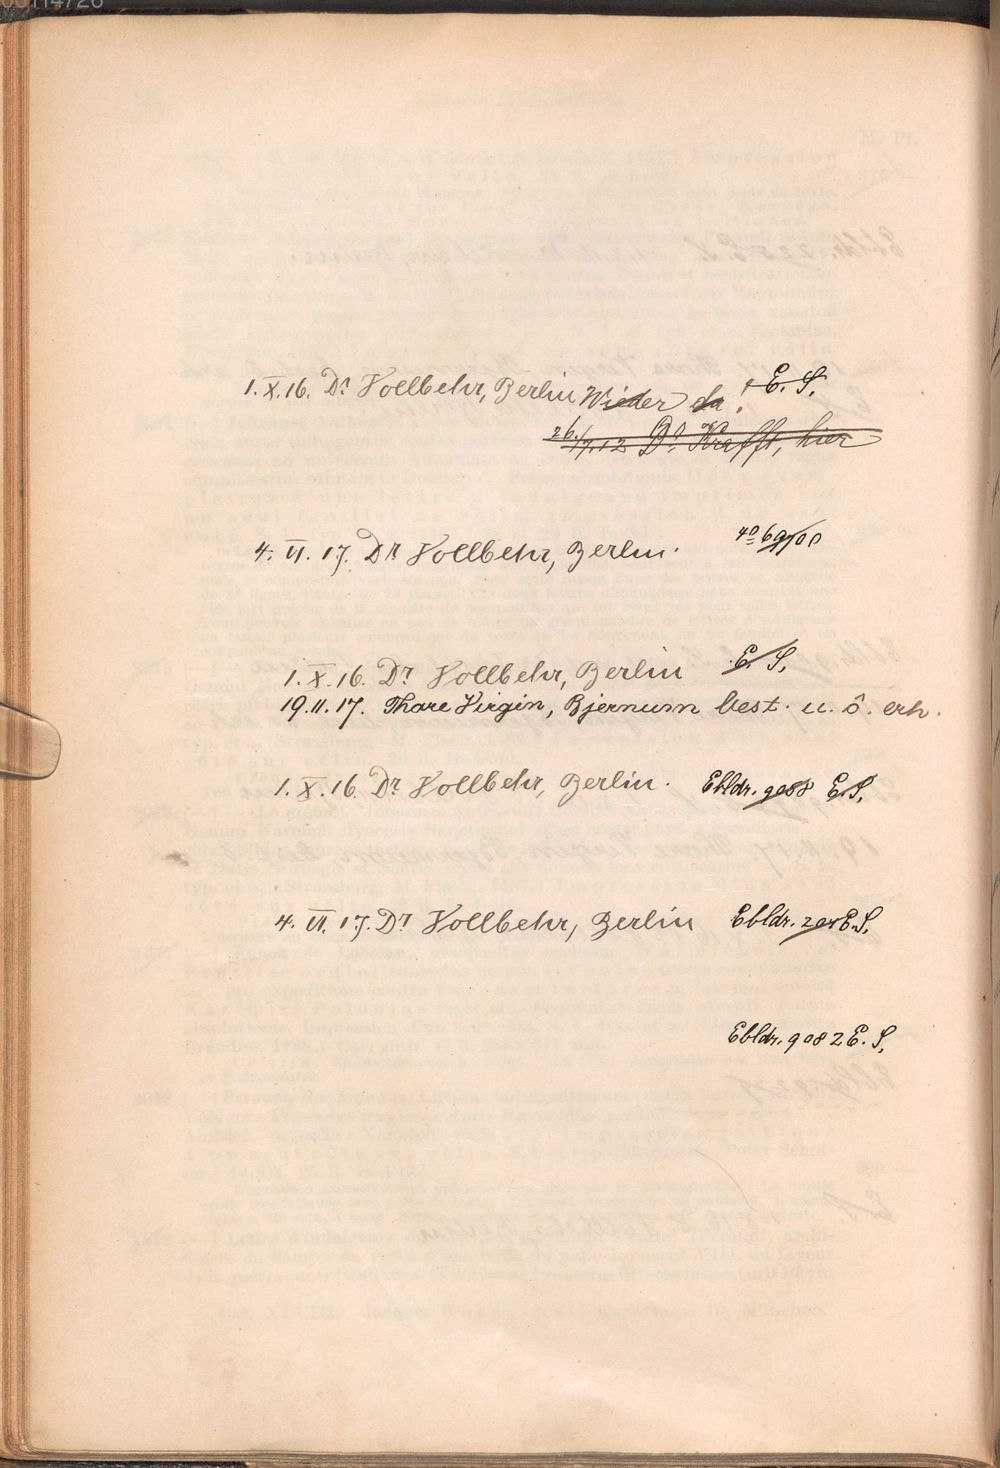 00114726
1. X. 16. Dr Vollbehr, Berlin Wieder da! E. S.
26./7.12 Dr. Krafft, hier
4. II. 17. Dr Vollbehr, Berlin. 4° 69/00
1. X. 16. Dr Vollbehr, Berlin E. S.
19.11.17. Thore Virgin, Bjernum best. u. ö. erh.
1. X. 16 Dr Vollbehr, Berlin. Ebldr. 9088 E. S.
4. II. 17. Dr Vollbehr, Berlin Ebldr. E. S.
Ebldr. 9082 E. S.